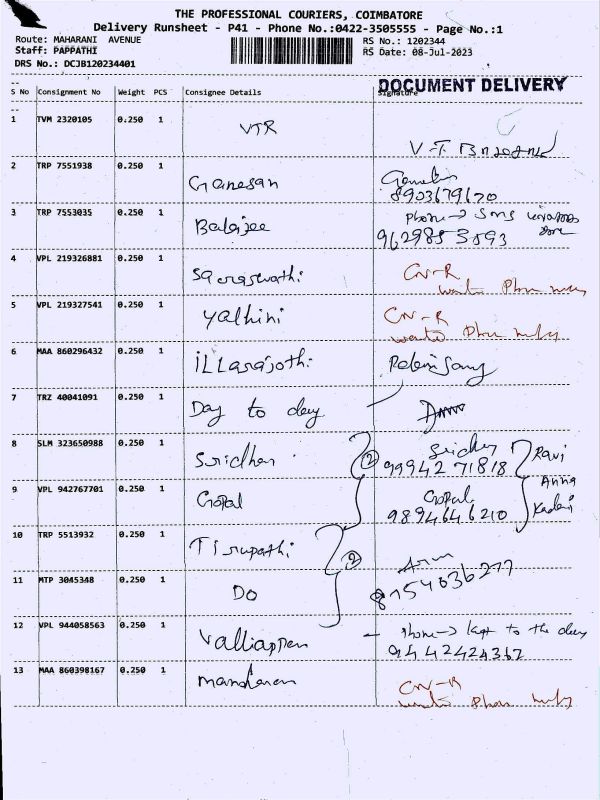 THE PROFESSIONAL COURIERS, COIMBATORE
Delivery Runsheet - P41 - Phone No.:0422-3505555 - Page No.:1
Route: MAHARANI AVENUE
Staff: PAPPATHI
DRS No.: DCJB120234401
RS No.: 1202344
RS Date: 08-Jul-2023
DOCUMENT DELIVERY
S No Consignment No Weight PCS Consignee Details Signature
1 TVM 2320105 0.250 1 VTR
V-T
2 TRP 7551938 0.250 1 Ganesan
8903679620
3 TRP 7553035 0.250 1 Balajee Phone→
9629853893
4 VPL 219326881 0.250 1 Saraswathi CN-R
5 VPL 219327541 0.250 1 Yalhini CN-R
6 MAA 860296432 0.250 1 iLLarajothi
7 TRZ 40041091 0.250 1 Day to day
8 SLM 323650988 0.250 1 Sridhar 2 Ravi
99942 71818
Anna
9 VPL 942767701 0.250 1 Gopal Gopal
9894646210
10 TRP 5513932 0.250 1 Tirupathi 2
11 MTP 3045348 0.250 1 DO 8754036277
12 VPL 944058563 0.250 1 Valliappan - Phone→ kept to the
9442424362
13 MAA 860398167 0.250 1 CN-R